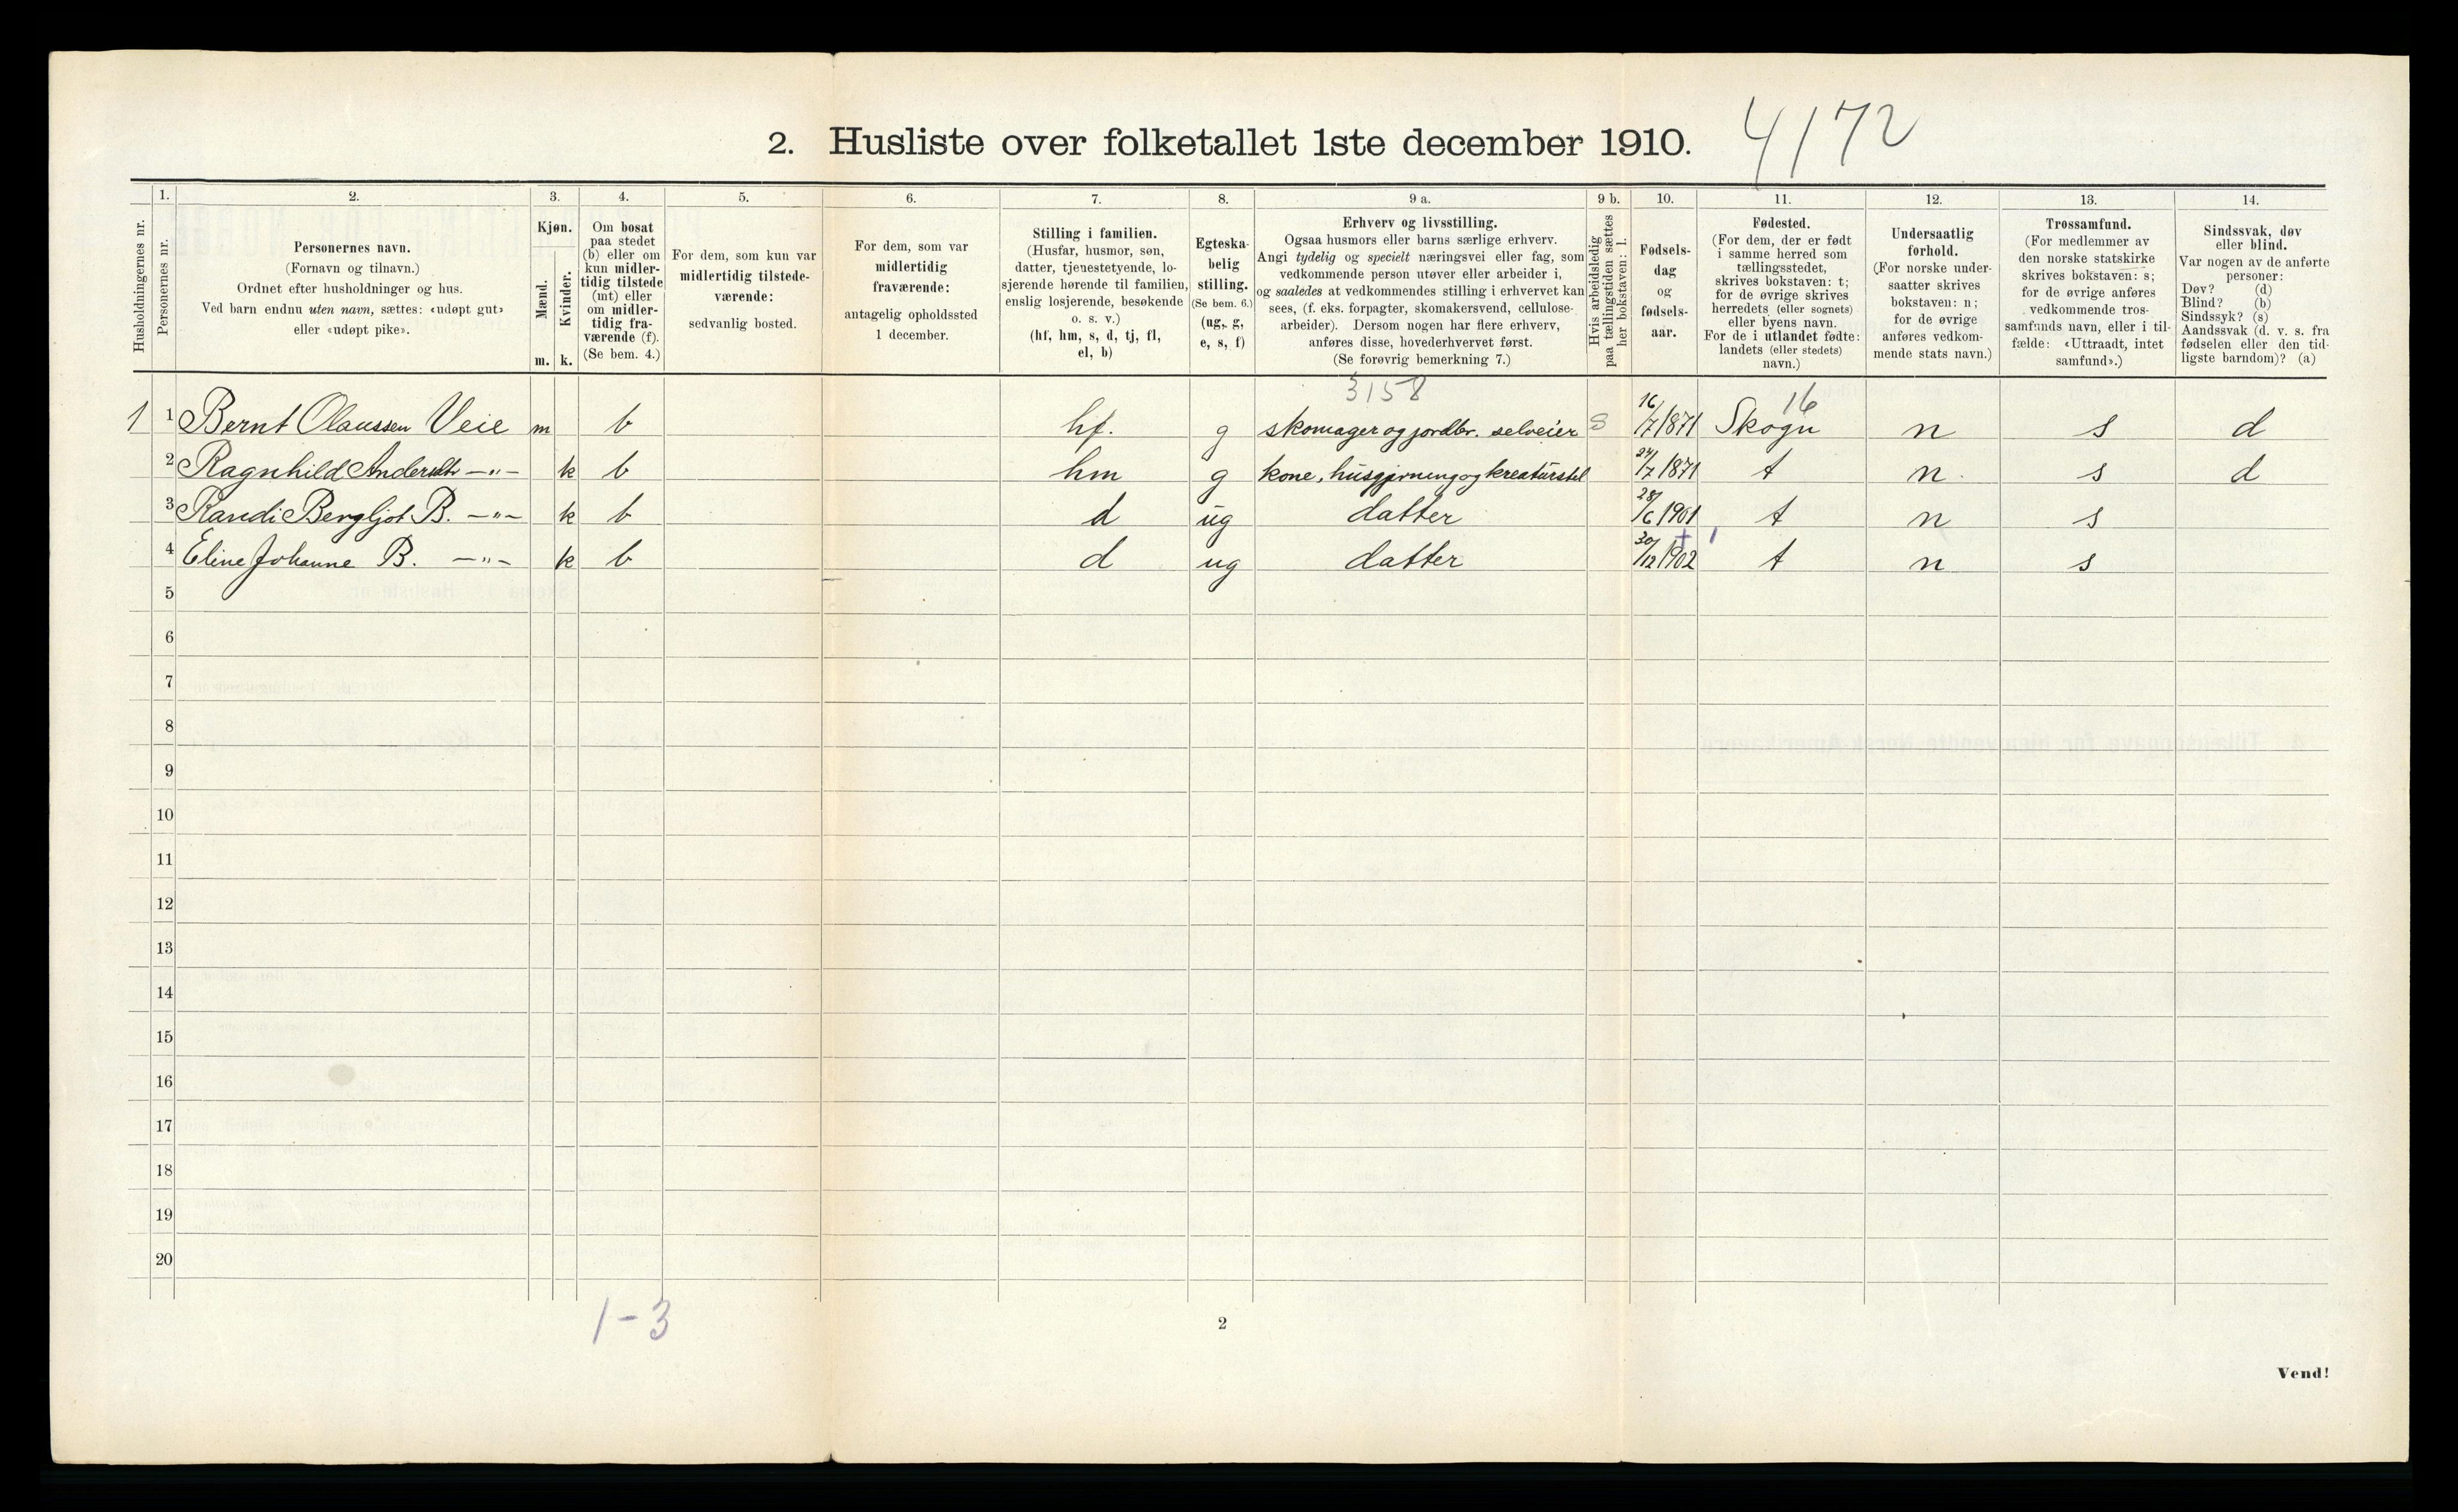 2. Husliste over folketallet 1ste december 1910. 4172
Husholdningernes nr.
1.
Personernes nr.
2.
Personernes navn.
(Fornavn og tilnavn.)
Ordnet efter husholdninger og hus.
Ved barn endnu uten navn, sættes: «udøpt gut»
eller «udøpt pike».
3.
Kjøn.
Mænd.
Kvinder.
m. k.
4.
Om bosat
paa stedet
(b) eller om
kun midler-
tidig tilstede
(mt) eller
om midler-
tidig fra-
værende (f).
(Se bem. 4.)
5.
For dem, som kun var
midlertidig tilstede-
værende:
sedvanlig bosted.
6.
For dem, som var
midlertidig
fraværende:
antagelig opholdssted
1 december.
7.
Stilling i familien.
(Husfar, husmor, søn,
datter, tjenestetyende, lo-
sjerende hørende til familien,
enslig losjerende, besøkende
o. s. v.)
(hf, hm, s, d, tj, fl,
el, b)
8.
Egteska-
belig
stilling.
(Se bem. 6.)
(ug, g,
e, s, f)
9 a.
Erhverv og livsstilling.
Ogsaa husmors eller barns særlige erhverv.
Angi tydelig og specielt næringsvei eller fag, som
vedkommende person utøver eller arbeider i,
og saaledes at vedkommendes stilling i erhvervet kan
sees, (f. eks. forpagter, skomakersvend, cellulose-
arbeider). Dersom nogen har flere erhverv,
anføres disse, hovederhvervet først.
(Se forøvrig bemerkning 7.)
9 b.
Hvis arbeidsledig
paa tællingstiden sættes
her bokstaven: l.
10.
Fødsels-
dag
og
fødsels-
aar.
11.
Fødested.
(For dem, der er født
i samme herred som
tællingsstedet,
skrives bokstaven: t;
for de øvrige skrives
herredets (eller sognets)
eller byens navn.
For de i utlandet fødte:
landets (eller stedets)
navn.)
12.
Undersaatlig
forhold.
(For norske under-
saatter skrives
bokstaven: n;
for de øvrige
anføres vedkom-
mende stats navn.)
13.
Trossamfund.
(For medlemmer av
den norske statskirke
skrives bokstaven: s;
for de øvrige anføres
vedkommende tros-
samfunds navn, eller i til-
fælde: «Uttraadt, intet
samfund».)
14.
Sindssvak, døv
eller blind.
Var nogen av de anførte
personer:
Døv? (d)
Blind? (b)
Sindssyk? (s)
Aandssvak (d. v. s. fra
fødselen eller den tid-
ligste barndom)? (a)
3158 16
1 1 Bernt Olaussen Veie m b hf. g skomager og jordbr. selveier S 16/7 1871 Skogn n s d
2 Ragnhild Andersdtr —"— k b hm g kone, husgjerning og kreaturstel 24/7 1871 t n. s d
3 Randi Bergljot B. —"— k b d ug datter 28/6 1901 t n s
4 Eline Johanne B. —"— k b d ug datter 30/12 1902 t n s
5
6
7
8
9
10
11
12
13
14
15
16
17
18
19
20
1-3
2
Vend!